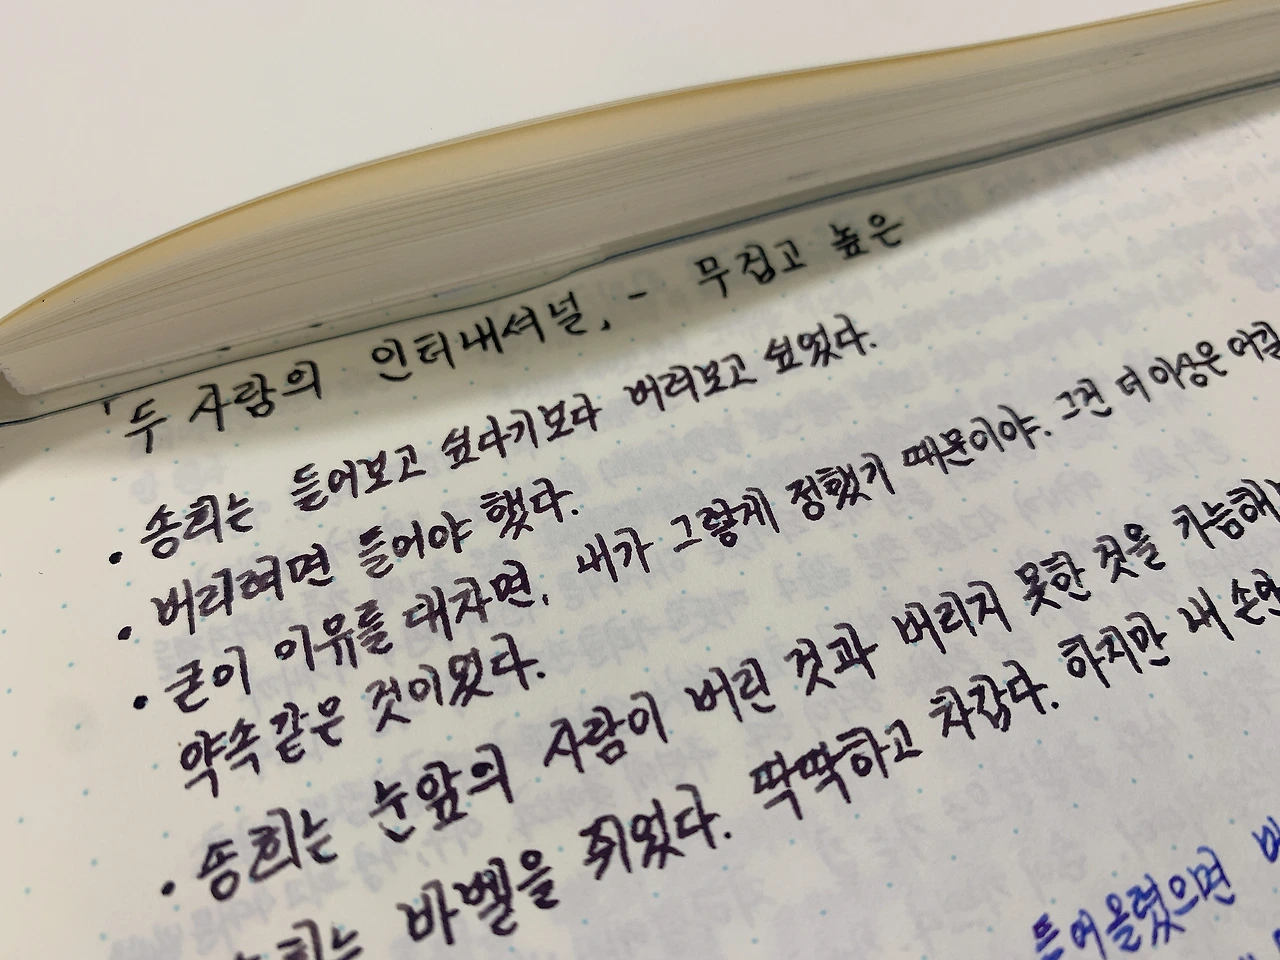 「두 사람의 인터내셔널, - 무겁고 높은
• 송희는 들어보고 싶다기보다 버려보고 싶었다.
• 버리려면 들어야 했다.
• 굳이 이유를 대자면, 내가 그렇게 정했기 때문이야. 그건 더 이상은 어길
약속같은 것이었다.
• 송희는 눈앞의 사람이 버린 것과 버리지 못한 것을 가늠해
송희는 바벨을 쥐었다. 딱딱하고 차갑다. 하지만 내 손안
들어올렸으면